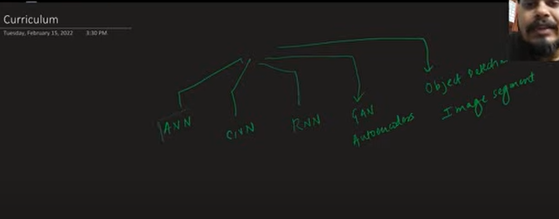 Curriculum
Tuesday, February 15, 2022 3:30 PM
ANN
CNN
RNN
GAN
Autoencoders
Object Detection
Image segment